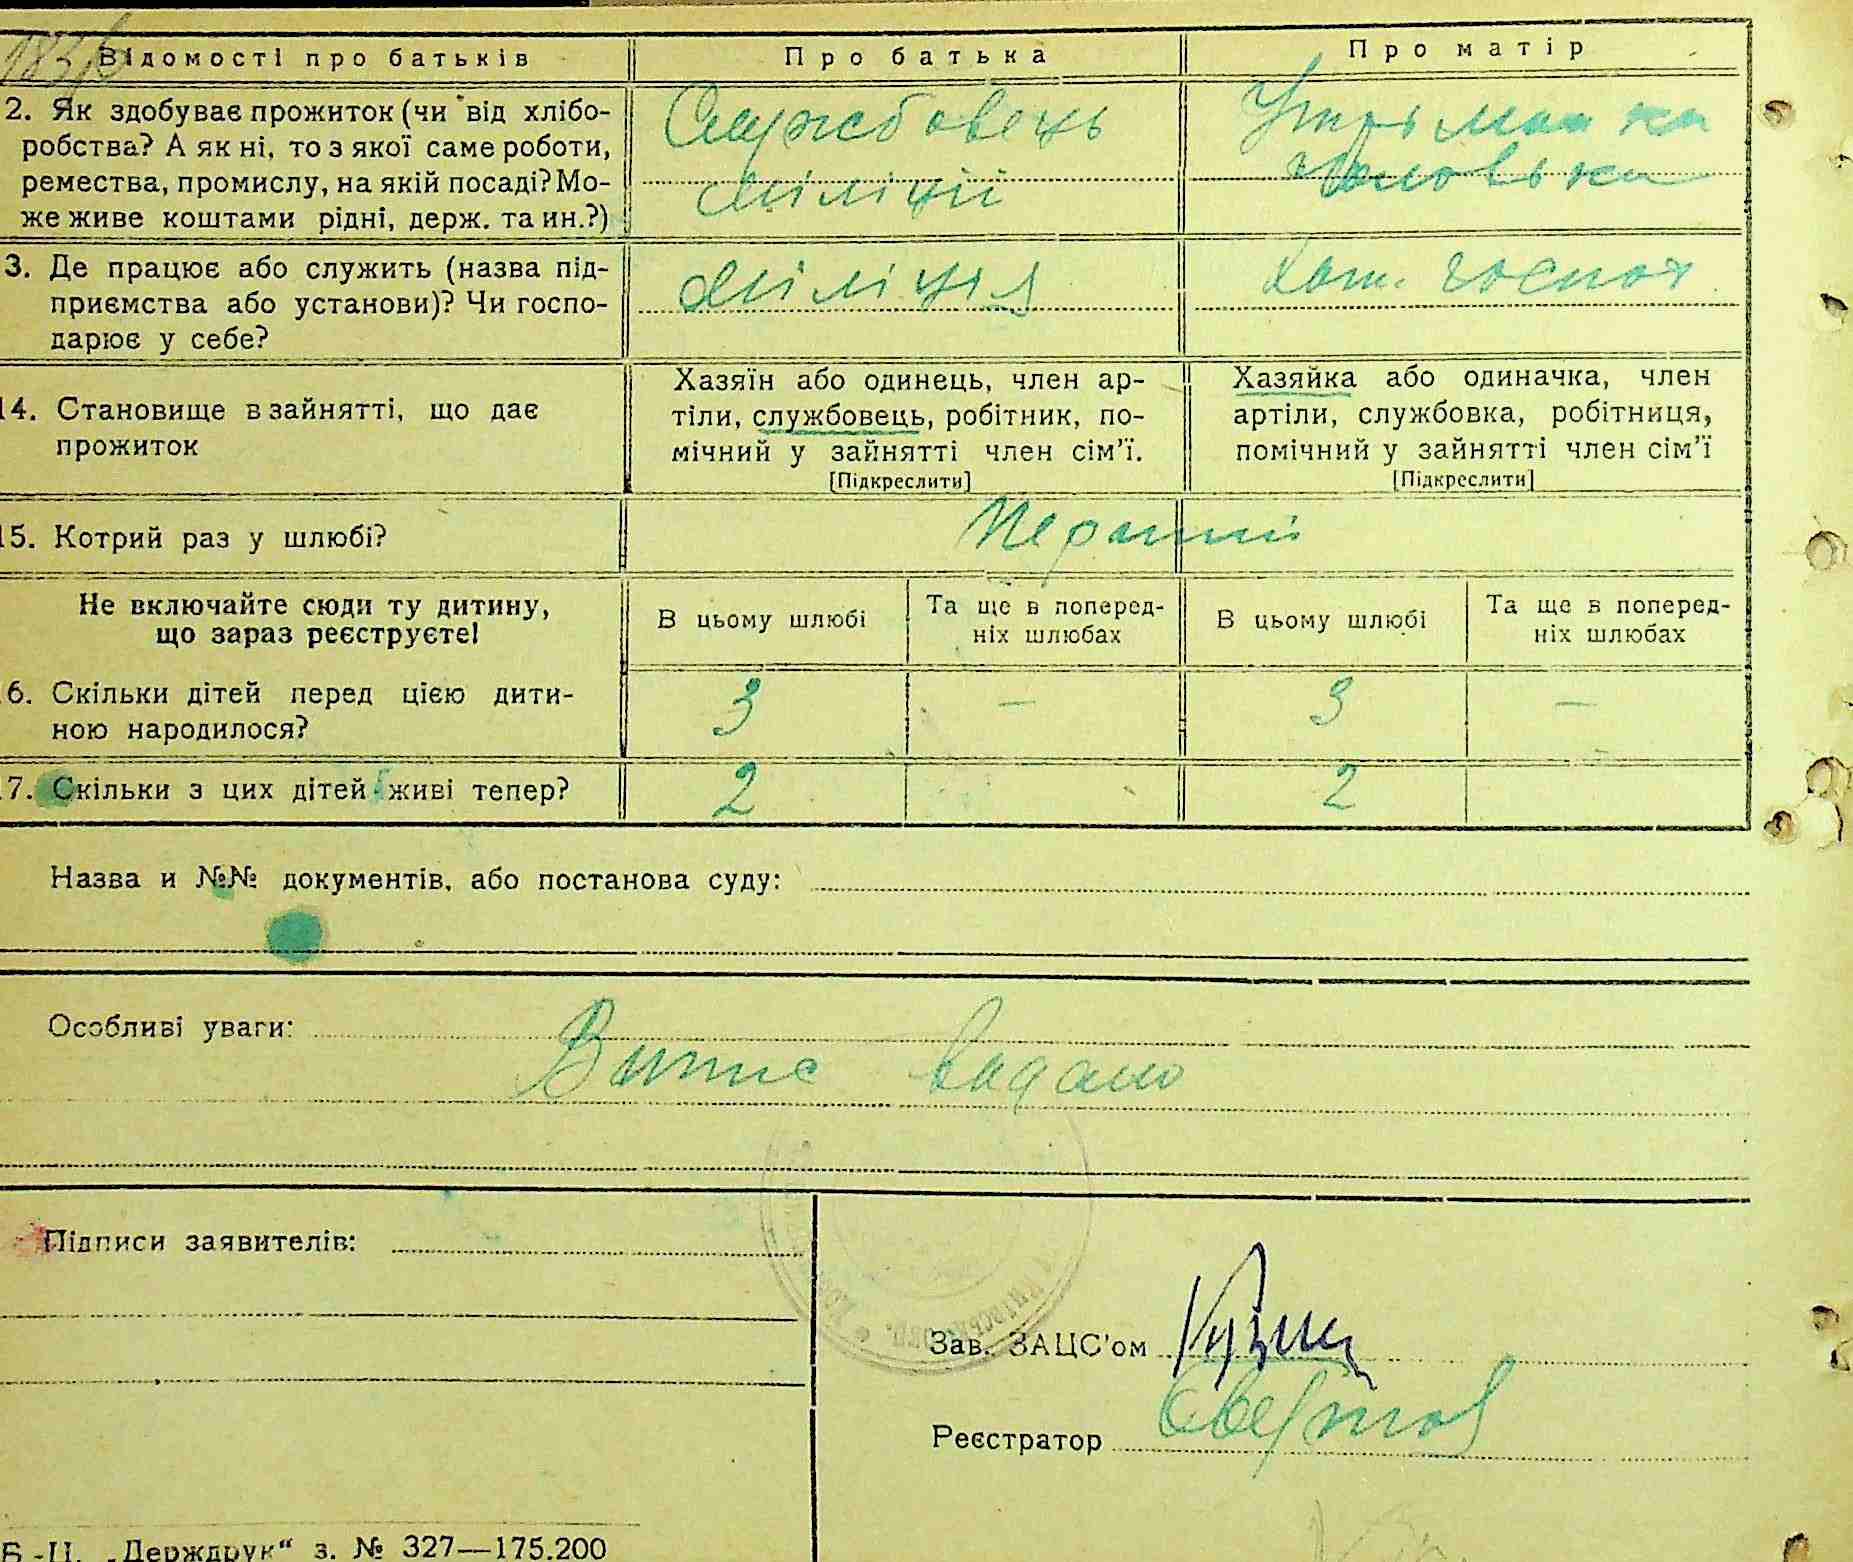 Відомості про батьків Про батька Про матір
2. Як здобуває прожиток (чи від хлібо-
робства? А як ні, то з якої саме роботи,
ремества, промислу, на якій посаді? Мо-
же живе коштами рідні, держ. та ин.?)
Службовець
міліції
Утриманка
чоловіка
3. Де працює або служить (назва під-
приємства або установи)? Чи госпо-
дарює у себе?
міліція
Хат. господ
14. Становище в зайнятті, що дає
прожиток
Хазяїн або одинець, член ар-
тіли, службовець, робітник, по-
мічний у зайнятті член сім’ї.
[Підкреслити]
Хазяйка або одиначка, член
артіли, службовка, робітниця,
помічний у зайнятті член сім’ї
[Підкреслити]
15. Котрий раз у шлюбі?
Перший
Не включайте сюди ту дитину,
що зараз реєструєте!
В цьому шлюбі
Та ще в поперед-
ніх шлюбах
В цьому шлюбі
Та ще в поперед-
ніх шлюбах
6. Скільки дітей перед цією дити-
ною народилося?
3 — 3 —
7. Скільки з цих дітей живі тепер?
2 2
Назва и №№ документів, або постанова суду:
Особливі уваги:
Витис видано
Підписи заявителів:
Зав. ЗАЦС’ом
Реєстратор
Б.-Ц. „Держдрук“ з. № 327—175.200